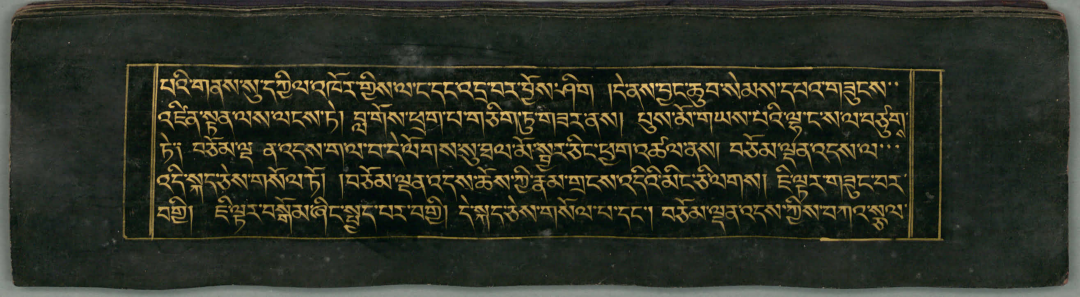 པའི་གནས་སུ་དཀྱིལ་འཁོར་གྱིས་ལ་ང་དང་འདྲ་བར་བྱོས་ཤིག །དེ་ནས་བྱང་ཆུབ་སེམས་དཔའ་གཟུངས་་
འཛིན་སྟན་ལས་ལངས་ཏེ། བླ་གོས་ཕྲག་པ་གཅིག་ཏུ་གཟར་ནས། པུས་མོ་གཡས་པའི་ལྷ་ང་ས་ལ་བཙུག
ཏེ། བཅོམ་ལྡན་འདས་ག་ལ་བ་དེ་ལོགས་སུ་ཐལ་མོ་སྦྱར་ཅིང་ཕྱག་འཚལ་ནས། བཅོམ་ལྡན་འདས་ལ་་་
འདི་སྐད་ཅེས་གསོལ་ཏོ། །བཅོམ་ལྡན་འདས་ཆོས་ཀྱི་རྣམ་གྲངས་འདིའི་མིང་ཅི་ལགས། ཇི་ལྟར་གཟུང་བར་
བགྱི། ཇི་ལྟར་བསྒོམ་ཞིང་སྤྱད་པར་བགྱི། དེ་སྐད་ཅེས་གསོལ་པ་དང་། བཅོམ་ལྡན་འདས་ཀྱིས་བཀའ་སྩལ་